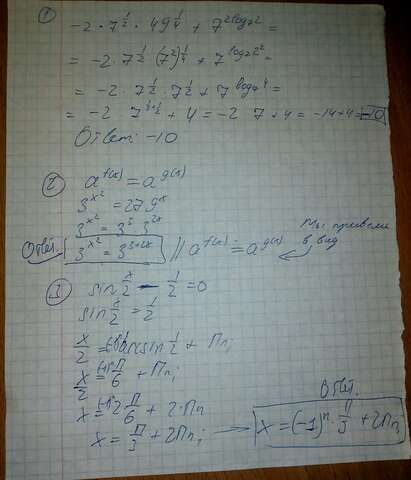 ① -2 · 7^(1/2) · 49^(1/4) + 7^(2log₇2) =
= -2 · 7^(1/2) (7²)^(1/4) + 7^(log₇2²) =
= -2 · 7^(1/2) · 7^(1/2) + 7^(log₇4)
= -2 7^(1/2+1/2) + 4 = -2 7 + 4 = -14+4 = -10
Ответ: -10
② a^(f(x)) = a^(g(x))
3^(x²) = 27 9^x
3^(x²) = 3^3 3^(2x)
Ответ. 3^(x²) = 3^(3+2x) // a^(f(x)) = a^(g(x)) Мы привели в вид
③ sin x/2 - 1/2 = 0
sin x/2 = 1/2
x/2 = (-1)^n arcsin 1/2 + Πn;
x/2 = (-1)^n Π/6 + Πn;
x = (-1)^n 2 Π/6 + 2·Πn
x = Π/3 + 2Πn;
Ответ.
x = (-1)^n · Π/3 + 2Πn;